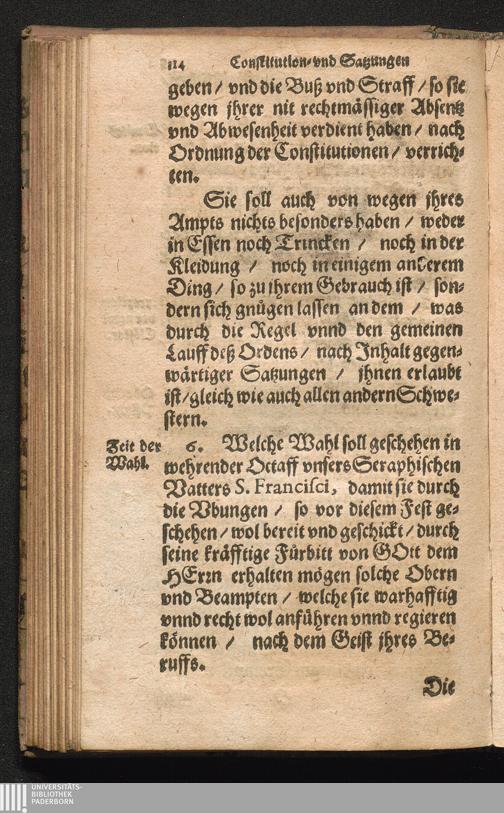 114 Constitution- vnd Satzungen
geben / vnd die Buß vnd Straff / so sie
wegen jhrer nit rechtmässiger Absentz
vnd Abwesenheit verdient haben / nach
Ordnung der Constitutionen / verrich-
ten.
Sie soll auch von wegen jhres
Ampts nichts besonders haben / weder
in Essen noch Trincken / noch in der
Kleidung / noch in einigem anderem
Ding / so zu ihrem Gebrauch ist / son-
dern sich gnügen lassen an dem / was
durch die Regel vnnd den gemeinen
Lauff deß Ordens / nach Inhalt gegen-
wärtiger Satzungen / jhnen erlaubt
ist / gleich wie auch allen andern Schwe-
stern.
Zeit der
Wahl.
6. Welche Wahl soll geschehen in
wehrender Octaff vnsers Seraphischen
Vatters S. Francisci, damit sie durch
die Vbungen / so vor diesem Fest ge-
schehen / wol bereit vnd geschickt / durch
seine kräfftige Fürbitt von GOtt dem
HErrn erhalten mögen solche Obern
vnd Beampten / welche sie warhafftig
vnnd recht wol anführen vnnd regieren
können / nach dem Geist jhres Be-
ruffs.
Die
UNIVERSITÄTS-
BIBLIOTHEK
PADERBORN